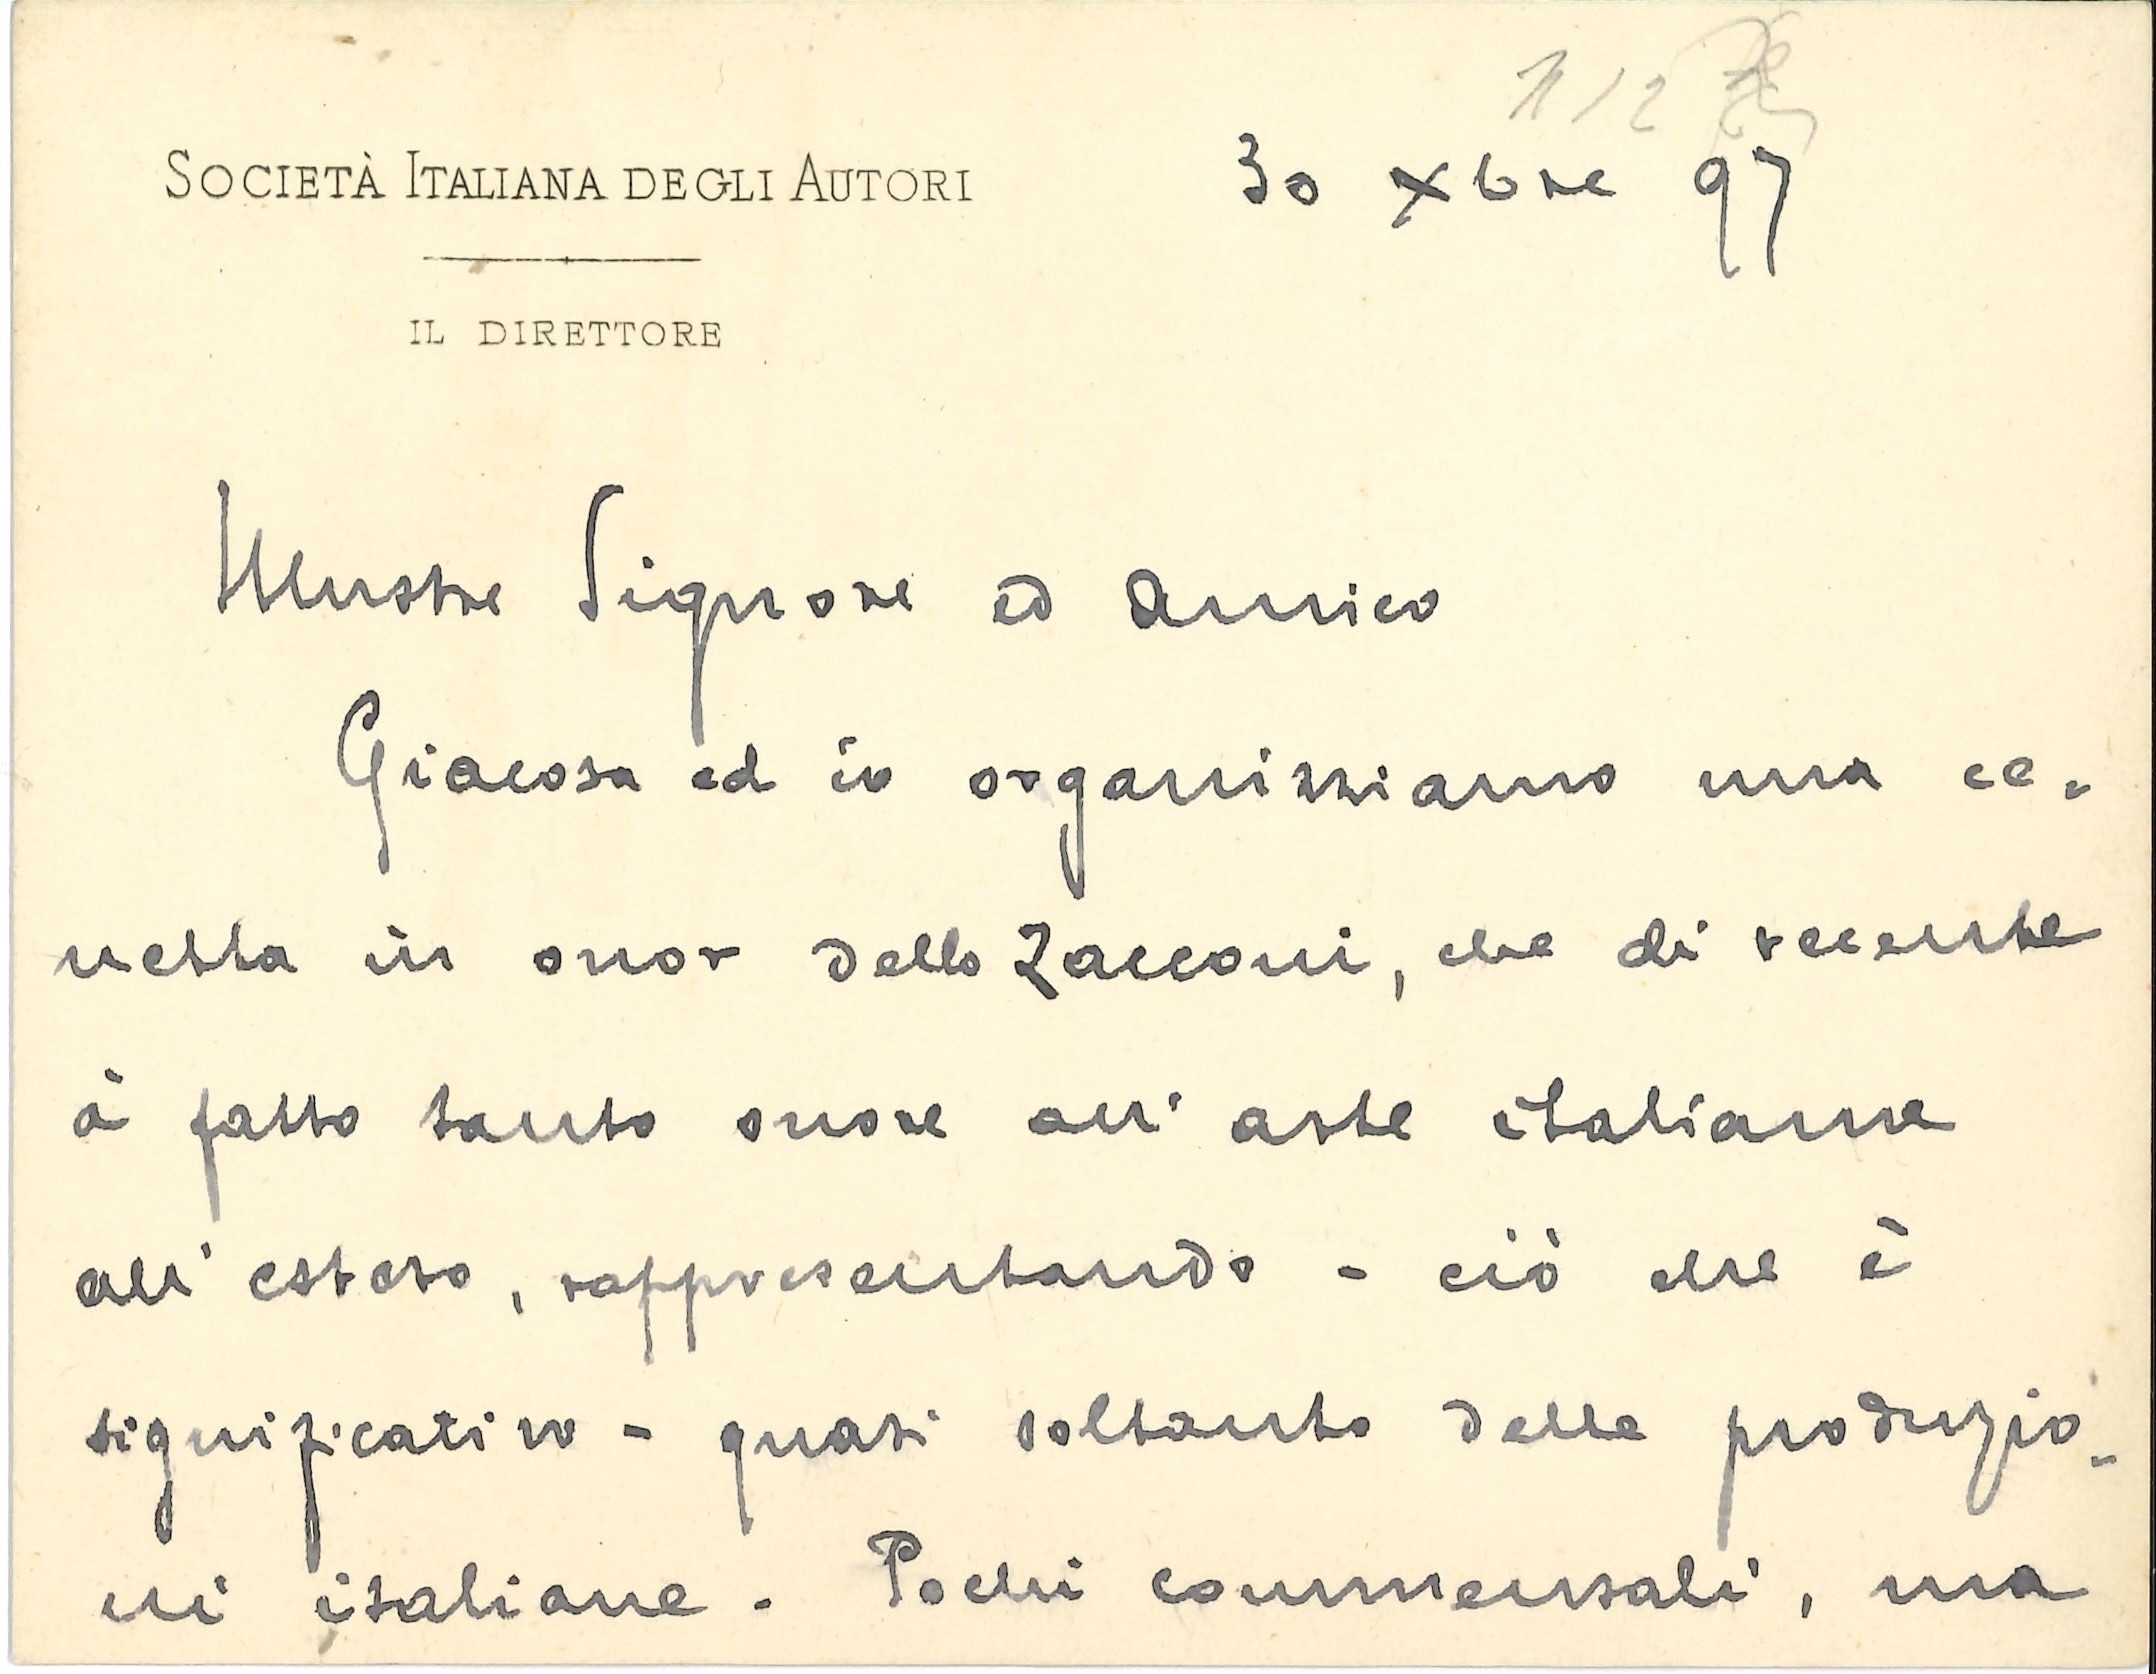 11/2
SOCIETÀ ITALIANA DEGLI AUTORI
30 Xbre 97
IL DIRETTORE
Illustre Signore ed amico
Giacosa ed io organizziamo una ce-
netta in onor dello Zacconi, che di recente
à fatto tanto onore all'arte italiana
all'estero, rappresentando - ciò che è
significativo - quasi soltanto delle produzio-
ni italiane. Pochi commensali, ma